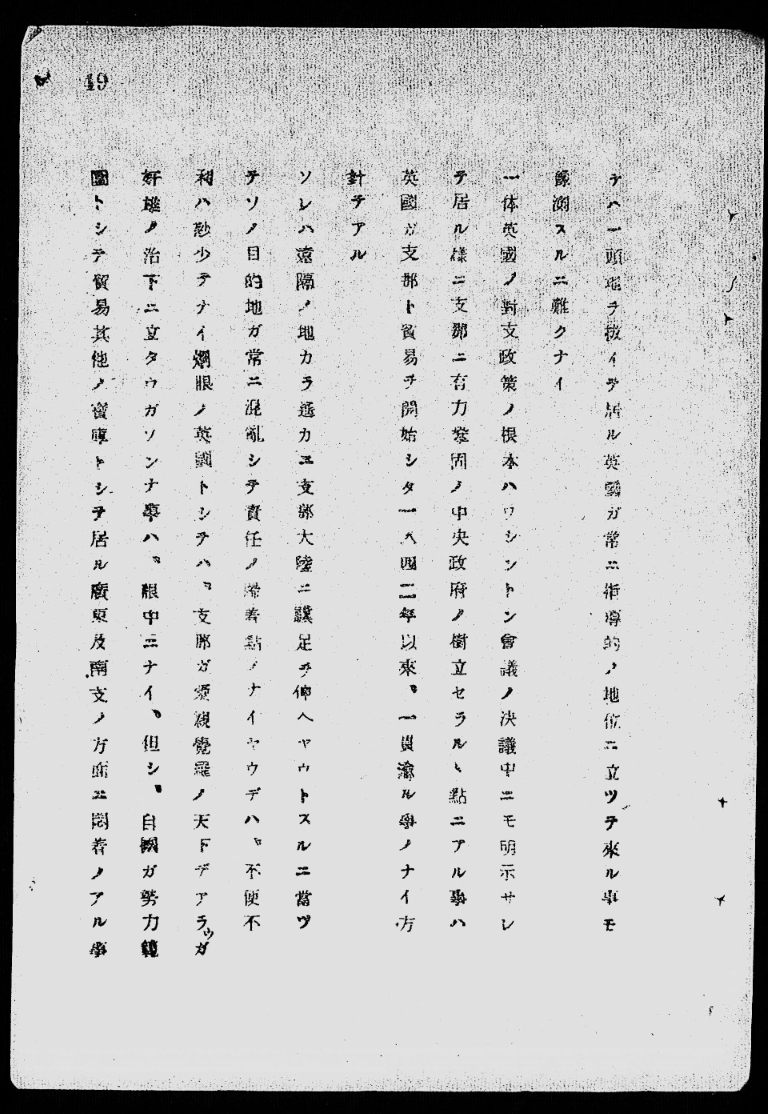 49
デハ一頭地ヲ抜イテ居ル英國ガ常ニ指導的ノ地位ニ立ツテ來ル事モ
像測スルニ難クナイ
一体英國ノ對支政策ノ根本ハワシントン會議ノ決議中ニモ明示サレ
テ居ル樣ニ支那ニ有力鞏固ノ中央政府ノ樹立セラルヽ點ニアル事ハ
英國ガ支那ト貿易ヲ開始シタ一八四二年以來、一貫渝ル事ノナイ方
針デアル
ソレハ遠隔ノ地カラ遙カニ支那大陸ニ驥足ヲ伸ヘヤウトスルニ當ツ
テソノ目的地ガ常ニ混亂シテ責任ノ歸着點ノナイヤウデハ、不便不
利ハ尠少デナイ炯眼ノ英國トシテハ、支那ガ愛親覺羅ノ天下デアラウガ
奸雄ノ治下ニ立タウガソンナ事ハ、眼中ニナイ、但シ、自國ガ勢力範
圍トシテ貿易其他ノ寶庫トシテ居ル廣東及南支ノ方面ニ悶着ノアル事